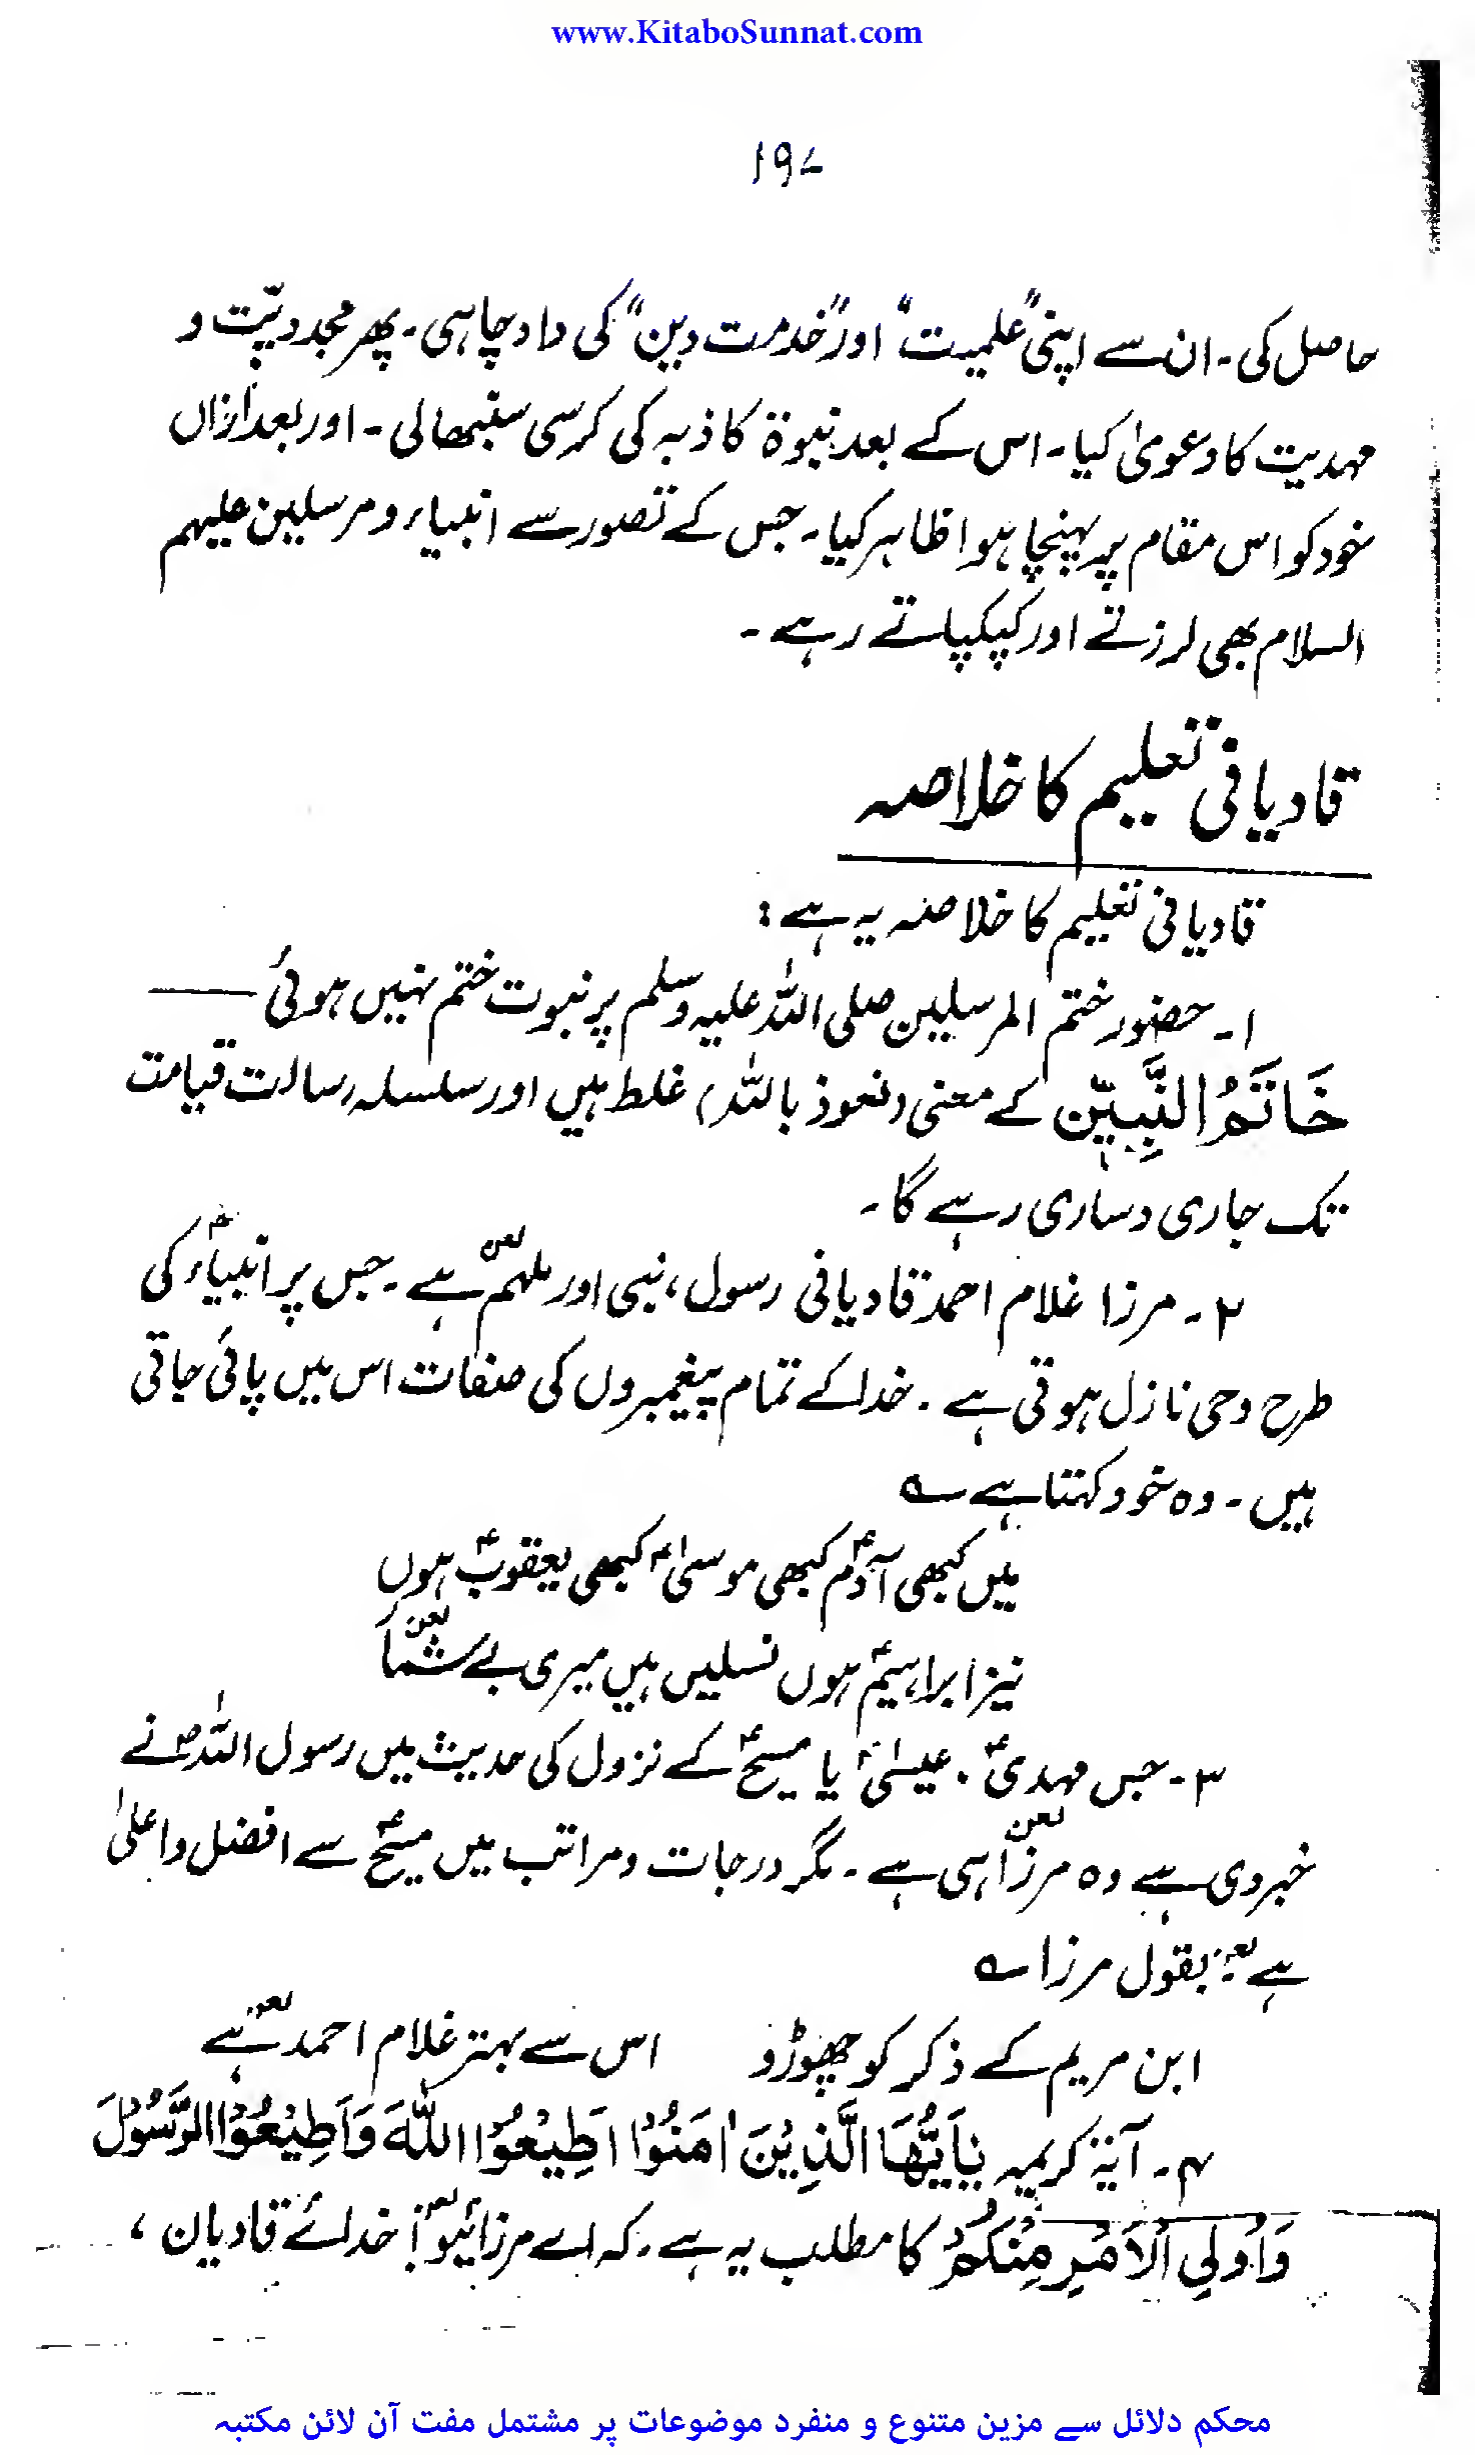 www.KitaboSunnat.com
۱۹۷
حاصل کی۔ ان سے اپنی "علمیت" اور "خدمت دین" کی داد چاہی۔ پھر مجددیّت و
مہدیت کا دعویٰ کیا۔ اس کے بعد نبوۃ کاذبہ کی کرسی سنبھالی۔ اور بعد ازاں
خود کو اس مقام پر پہنچا ہوا ظاہر کیا۔ جس کے تصور سے انبیاء و مرسلین علیہم
السلام بھی لرزتے اور کپکپاتے رہے۔
قادیانی تعلیم کا خلاصہ
قادیانی تعلیم کا خلاصہ یہ ہے:
۱۔ حضور ختم المرسلین صلی اللہ علیہ وسلم پر نبوت ختم نہیں ہوئی ——
خَاتَمُ النَّبِیّٖن کے معنی (نعوذ باللہ) غلط ہیں اور سلسلہ رسالت قیامت
تک جاری و ساری رہے گا۔
۲۔ مرزا غلام احمد قادیانی رسول، نبی اور ملہم لعن ہے۔ جس پر انبیاءؑ کی
طرح وحی نازل ہوتی ہے۔ خدا کے تمام پیغمبروں کی صفات اس میں پائی جاتی
ہیں۔ وہ خود کہتا ہے ؎
میں کبھی آدمؑ کبھی موسیٰؑ کبھی یعقوبؑ ہوں
نیز ابراہیمؑ ہوں نسلیں ہیں میری بے شمار لعن
۳۔ جس مہدیؑ۔ عیسیٰؑ یا مسیحؑ کے نزول کی حدیث میں رسول اللہؐ نے
خبر دی ہے وہ مرزا لعن ہی ہے۔ مگر درجات و مراتب میں مسیحؑ سے افضل و اعلیٰ
ہے بقول مرزا ؎
ابن مریم کے ذکر کو چھوڑو اس سے بہتر غلام احمد لعن ہے
۴۔ آیۃ کریمہ یٰاَیُّهَا الَّذِیْنَ اٰمَنُوْا اَطِیْعُوا اللّٰهَ وَاَطِیْعُوْا الرَّسُوْلَ
وَاُولِی الْاَمْرِ مِنْکُمْ کا مطلب یہ ہے۔ کہ اے مرزائیو لعن! خدائے قادیان،
محکم دلائل سے مزین متنوع و منفرد موضوعات پر مشتمل مفت آن لائن مکتبہ